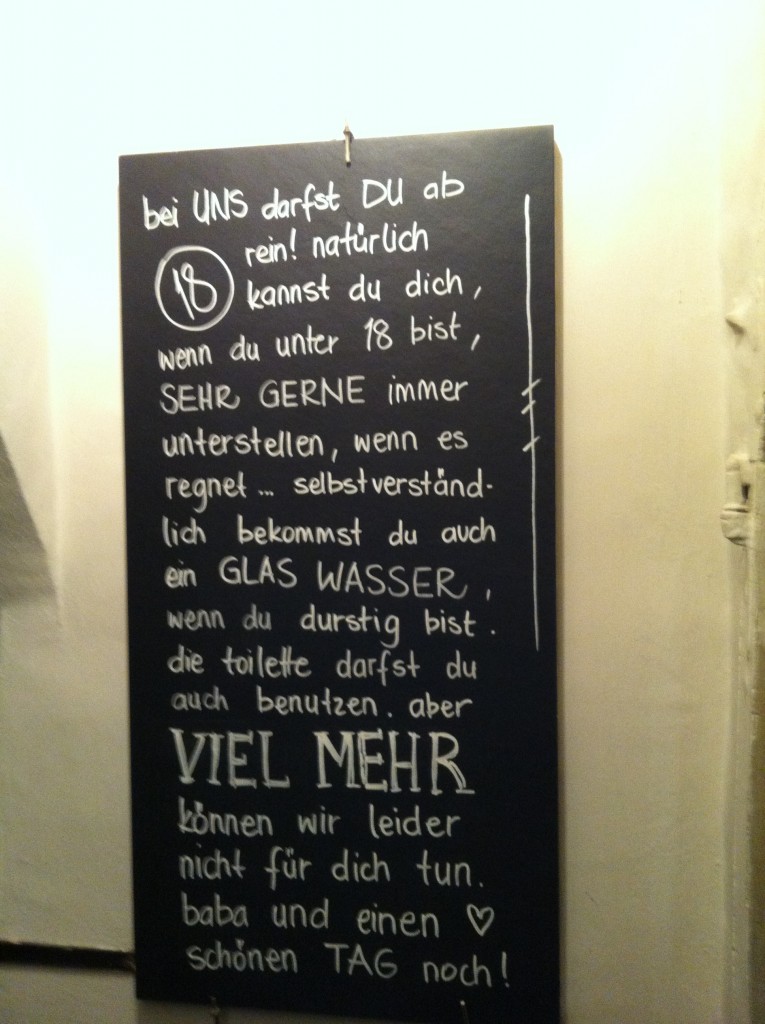 bei UNS darfst DU ab
18 rein! natürlich
kannst du dich,
wenn du unter 18 bist,
SEHR GERNE immer
unterstellen, wenn es
regnet... selbstverständ-
lich bekommst du auch
ein GLAS WASSER,
wenn du durstig bist.
die toilette darfst du
auch benutzen. aber
VIEL MEHR
können wir leider
nicht für dich tun.
baba und einen ♡
schönen TAG noch!